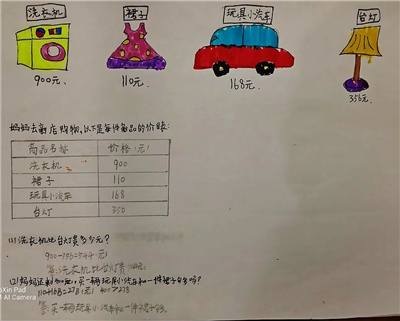 洗衣机 裙子 玩具小汽车 台灯
900元. 110元. 168元. 356元.
妈妈去商店购物,以下是每件商品的价钱:
商品名称 价格(元)
洗衣机 900
裙子 110
玩具小汽车 168
台灯 350
(1)洗衣机比台灯贵多少元?
900-356=544(元)
答:洗衣机比台灯贵
(2)妈妈还剩 元,买一辆玩具小汽车和一件裙子够吗?
110+168=278(元) 400>278
答:买一辆玩具小汽车和一件裙子够.
oXin Pad
AI CAMERA